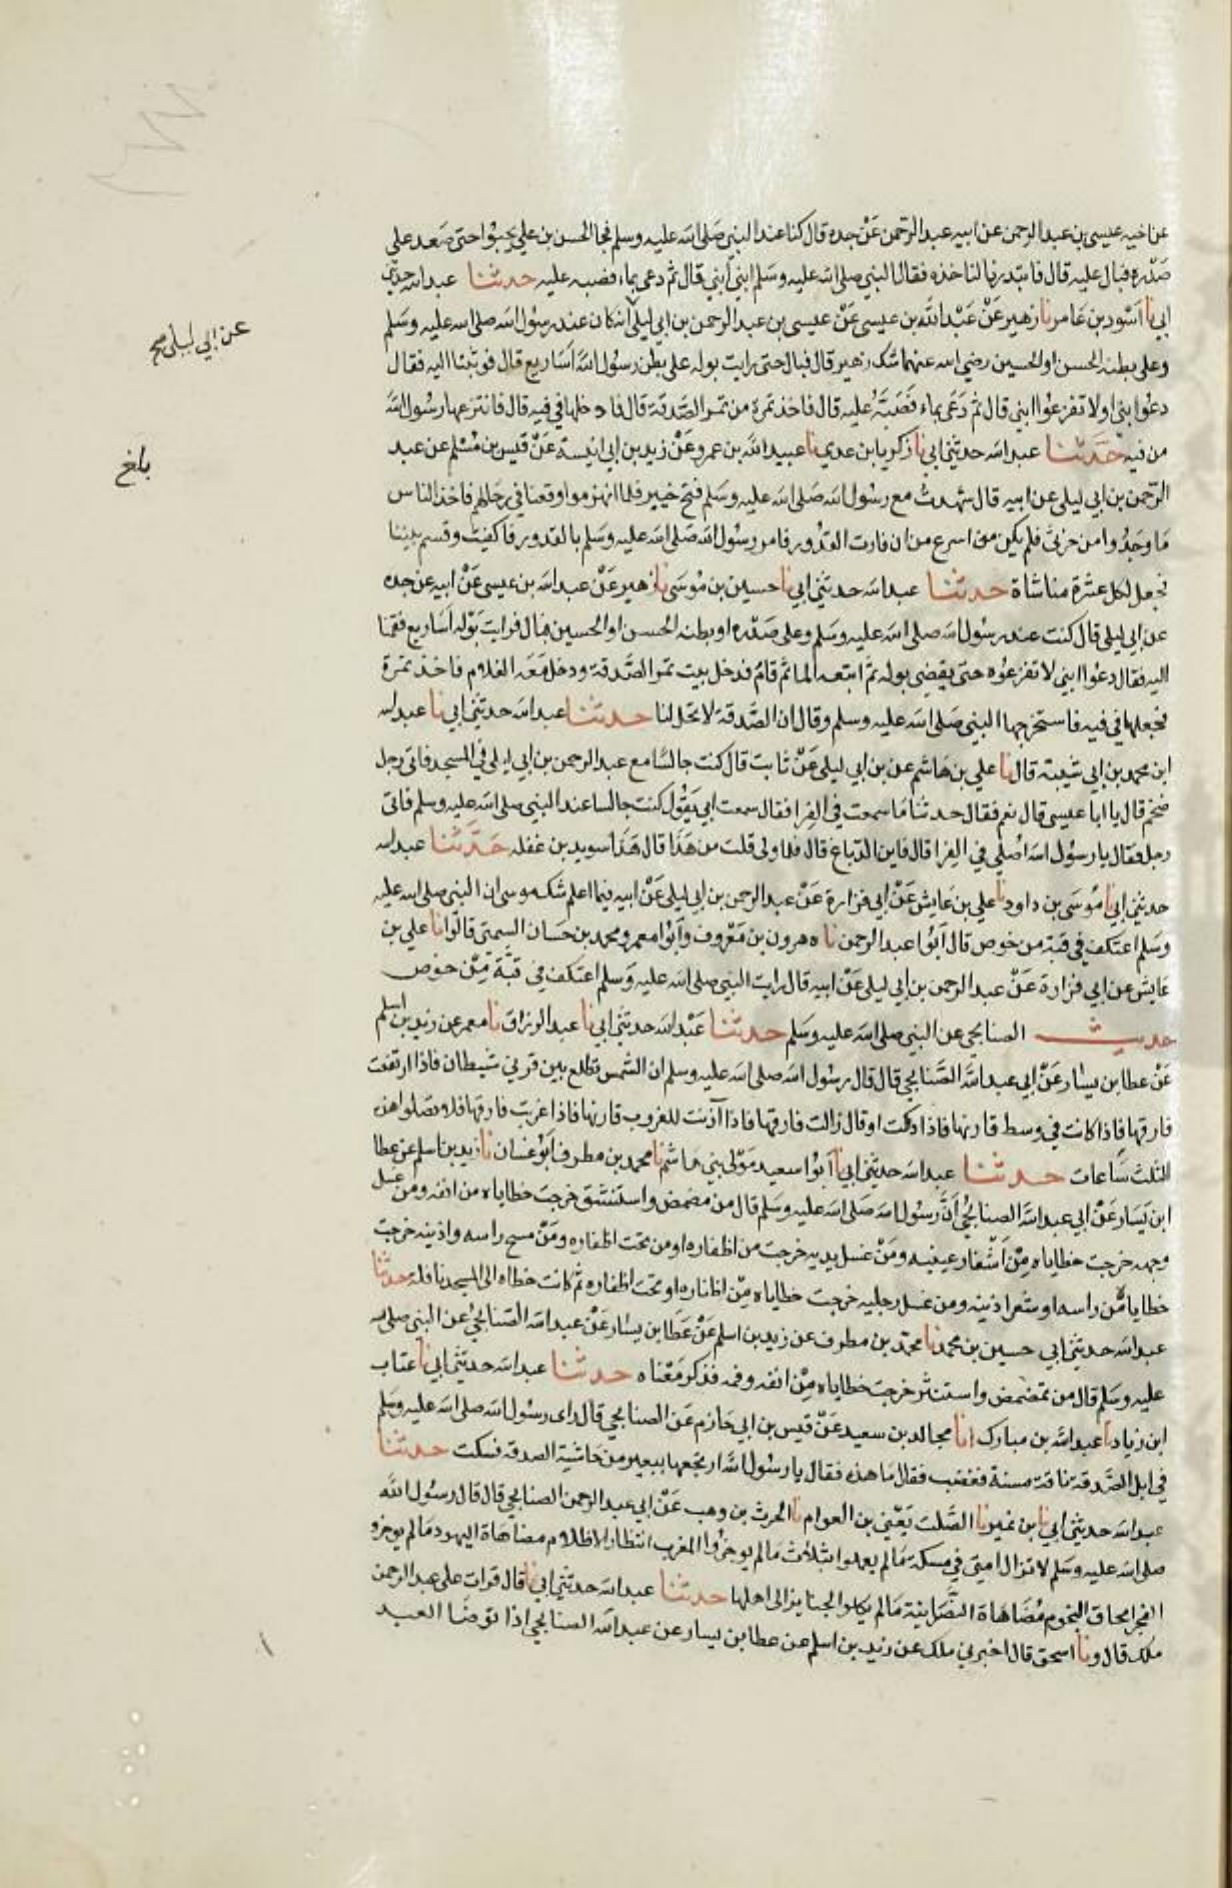 عن اخيه عيسى بن عبد الرحمن عن ابيه عبد الرحمن عن جده قال كنا عند النبي صلى الله عليه وسلم فجا الحسن بن علي يحبوا حتى صعد على
صدره فبال عليه قال فابتدرناه لناخذه فقال النبي صلى الله عليه وسلم ابني ابني قال ثم دعى بماء فصبه عليه حدثنا عبد الله حدثني
ابي نا اسود بن عامر نا زهير عن عبد الله بن عيسى عن عيسى بن عبد الرحمن بن ابي ليلى انه كان عند رسول الله صلى الله عليه وسلم
عن ابي ليلى صح
وعلى بطنه الحسن او الحسين رضي الله عنهما شك زهير قال فبال حتى رايت بوله على بطن رسول الله اساريع قال فوثبنا اليه فقال
دعوا بني اولا تفزعوا ابني قال ثم دعى بماء فصبه عليه قال فاخذ تمرة من تمر الصدقة قال فادخلها في فيه قال فانتزعها رسول الله
من فيه حدثنا عبد الله حدثني ابي نا زكريا بن عدي نا عبيد الله بن عمرو عن زيد بن ابي انيسة عن قيس بن مسلم عن عبد
بلغ
الرحمن بن ابي ليلى عن ابيه قال شهدت مع رسول الله صلى الله عليه وسلم فتح خيبر فلما انهزموا وقعنا في رحالهم فاخذ الناس
ما وجدوا من خرثى فلم يكن من اسرع من ان فارت القدور فامر رسول الله صلى الله عليه وسلم بالقدور فاكفيت وقسم بيننا
فجعل لكل عشرة منا شاة حدثنا عبد الله حدثني ابي نا حسين بن موسى نا زهير عن عبد الله بن عيسى عن ابيه عن جده
عن ابي ليلى قال كنت عند رسول الله صلى الله عليه وسلم وعلى صدره او بطنه الحسن او الحسين فبال فرايت بوله اساريع فقمنا
اليه فقال دعوا ابني لا تفزعوه حتى يقضي بوله ثم اتبعه الما ثم قام فدخل بيت تمر الصدقة ودخل معه الغلام فاخذ تمرة
فجعلها في فيه فاستخرجها النبي صلى الله عليه وسلم وقال ان الصدقة لا تحل لنا حدثنا عبد الله حدثني ابي نا عبد الله
ابن محمد بن ابي شيبة قال نا علي بن هاشم عن بن ابي ليلى عن ثابت قال كنت جالسا مع عبد الرحمن بن ابي ليلى في المسجد فاتى رجل
ضخم قال يا ابا عيسى قال نعم فقال حدثنا ما سمعت في الفرا فقال سمعت ابي يقول كنت جالسا عند النبي صلى الله عليه وسلم فاتى
رجل فقال يا رسول الله اصلي في الفرا قال فاين الدباغ قال فلما ولى قلت من هذا قال هذا سويد بن غفله حدثنا عبد الله
حدثني ابي نا موسى بن داود نا علي بن عايش عن ابي فزارة عن عبد الرحمن بن ابي ليلى عن ابيه فيما اعلم شك موسى ان النبي صلى الله عليه
وسلم اعتكف في قبة من خوص قال ابوا عبد الرحمن نا ه هرون بن معروف وابوا معمر ومحمد بن حسان السمتي قالوا نا علي بن
عايش عن ابي فزارة عن عبد الرحمن بن ابي ليلى عن ابيه قال رايت النبي صلى الله عليه وسلم اعتكف في قبة من خوص
حديث الصنابحي عن النبي صلى الله عليه وسلم حدثنا عبد الله حدثني ابي نا عبد الرزاق نا معمر عن زيد بن اسلم
عن عطا بن يسار عن ابي عبد الله الصنابحي قال قال رسول الله صلى الله عليه وسلم ان الشمس تطلع بين قرني شيطان فاذا ارتفعت
فارقها فاذا كانت في وسط قارنها فاذا دلكت او قال زالت فارقها فاذا آذنت للغروب قارنها فاذا غربت فارقها فلا تصلوا هذه
الثلث ساعات حدثنا عبد الله حدثني ابي نا ابوا سعيد مولى بني هاشم نا محمد بن مطرف ابو غسان نا زيد بن اسلم عن عطا
ابن يسار عن ابي عبد الله الصنابحي ان رسول الله صلى الله عليه وسلم قال من مضمض واستنشق خرجت خطاياه من انفه ومن غسل
وجهه خرجت خطاياه من اشفار عينيه ومن غسل يديه خرجت من اظفاره او من تحت اظفاره ومن مسح راسه واذنيه خرجت
خطاياه من راسه او شعر اذنيه ومن غسل رجليه خرجت خطاياه من اظفاره او تحت اظفاره ثم كانت خطاه الى المسجد نافلة حدثنا
عبد الله حدثني ابي حسين بن محمد نا محمد بن مطرف عن زيد بن اسلم عن عطا بن يسار عن عبد الله الصنابحي عن النبي صلى الله
عليه وسلم قال من تمضمض واستنثر خرجت خطاياه من انفه وفمه فذكر معناه حدثنا عبد الله حدثني ابي نا عتاب
ابن زياد نا عبد الله بن مبارك انا مجالد بن سعيد عن قيس بن ابي حازم عن الصنابحي قال راى رسول الله صلى الله عليه وسلم
في ابل الصدقة ناقة مسنة فغضب فقال ما هذه فقال يا رسول الله ارتجعها ببعير من حاشية الصدقة فسكت حدثنا
عبد الله حدثني ابي نا بن نمير نا الصلت يعني بن العوام نا الحرث بن وهب عن ابي عبد الرحمن الصنابحي قال قال رسول الله
صلى الله عليه وسلم لا تزال امتي في مسكة ما لم يعملوا بثلاث ما لم يوخروا المغرب انتظار الاظلام مضاهاة اليهود ما لم يوخروا
الفجر امحاق النجوم مضاهاة النصرانية ما لم يكلوا الجنايز الى اهلها حدثنا عبد الله حدثني ابي نا قال قرات على عبد الرحمن
ملك قال ونا اسحق قال اخبرني ملك عن زيد بن اسلم عن عطا بن يسار عن عبد الله الصنابحي اذا توضا العبد